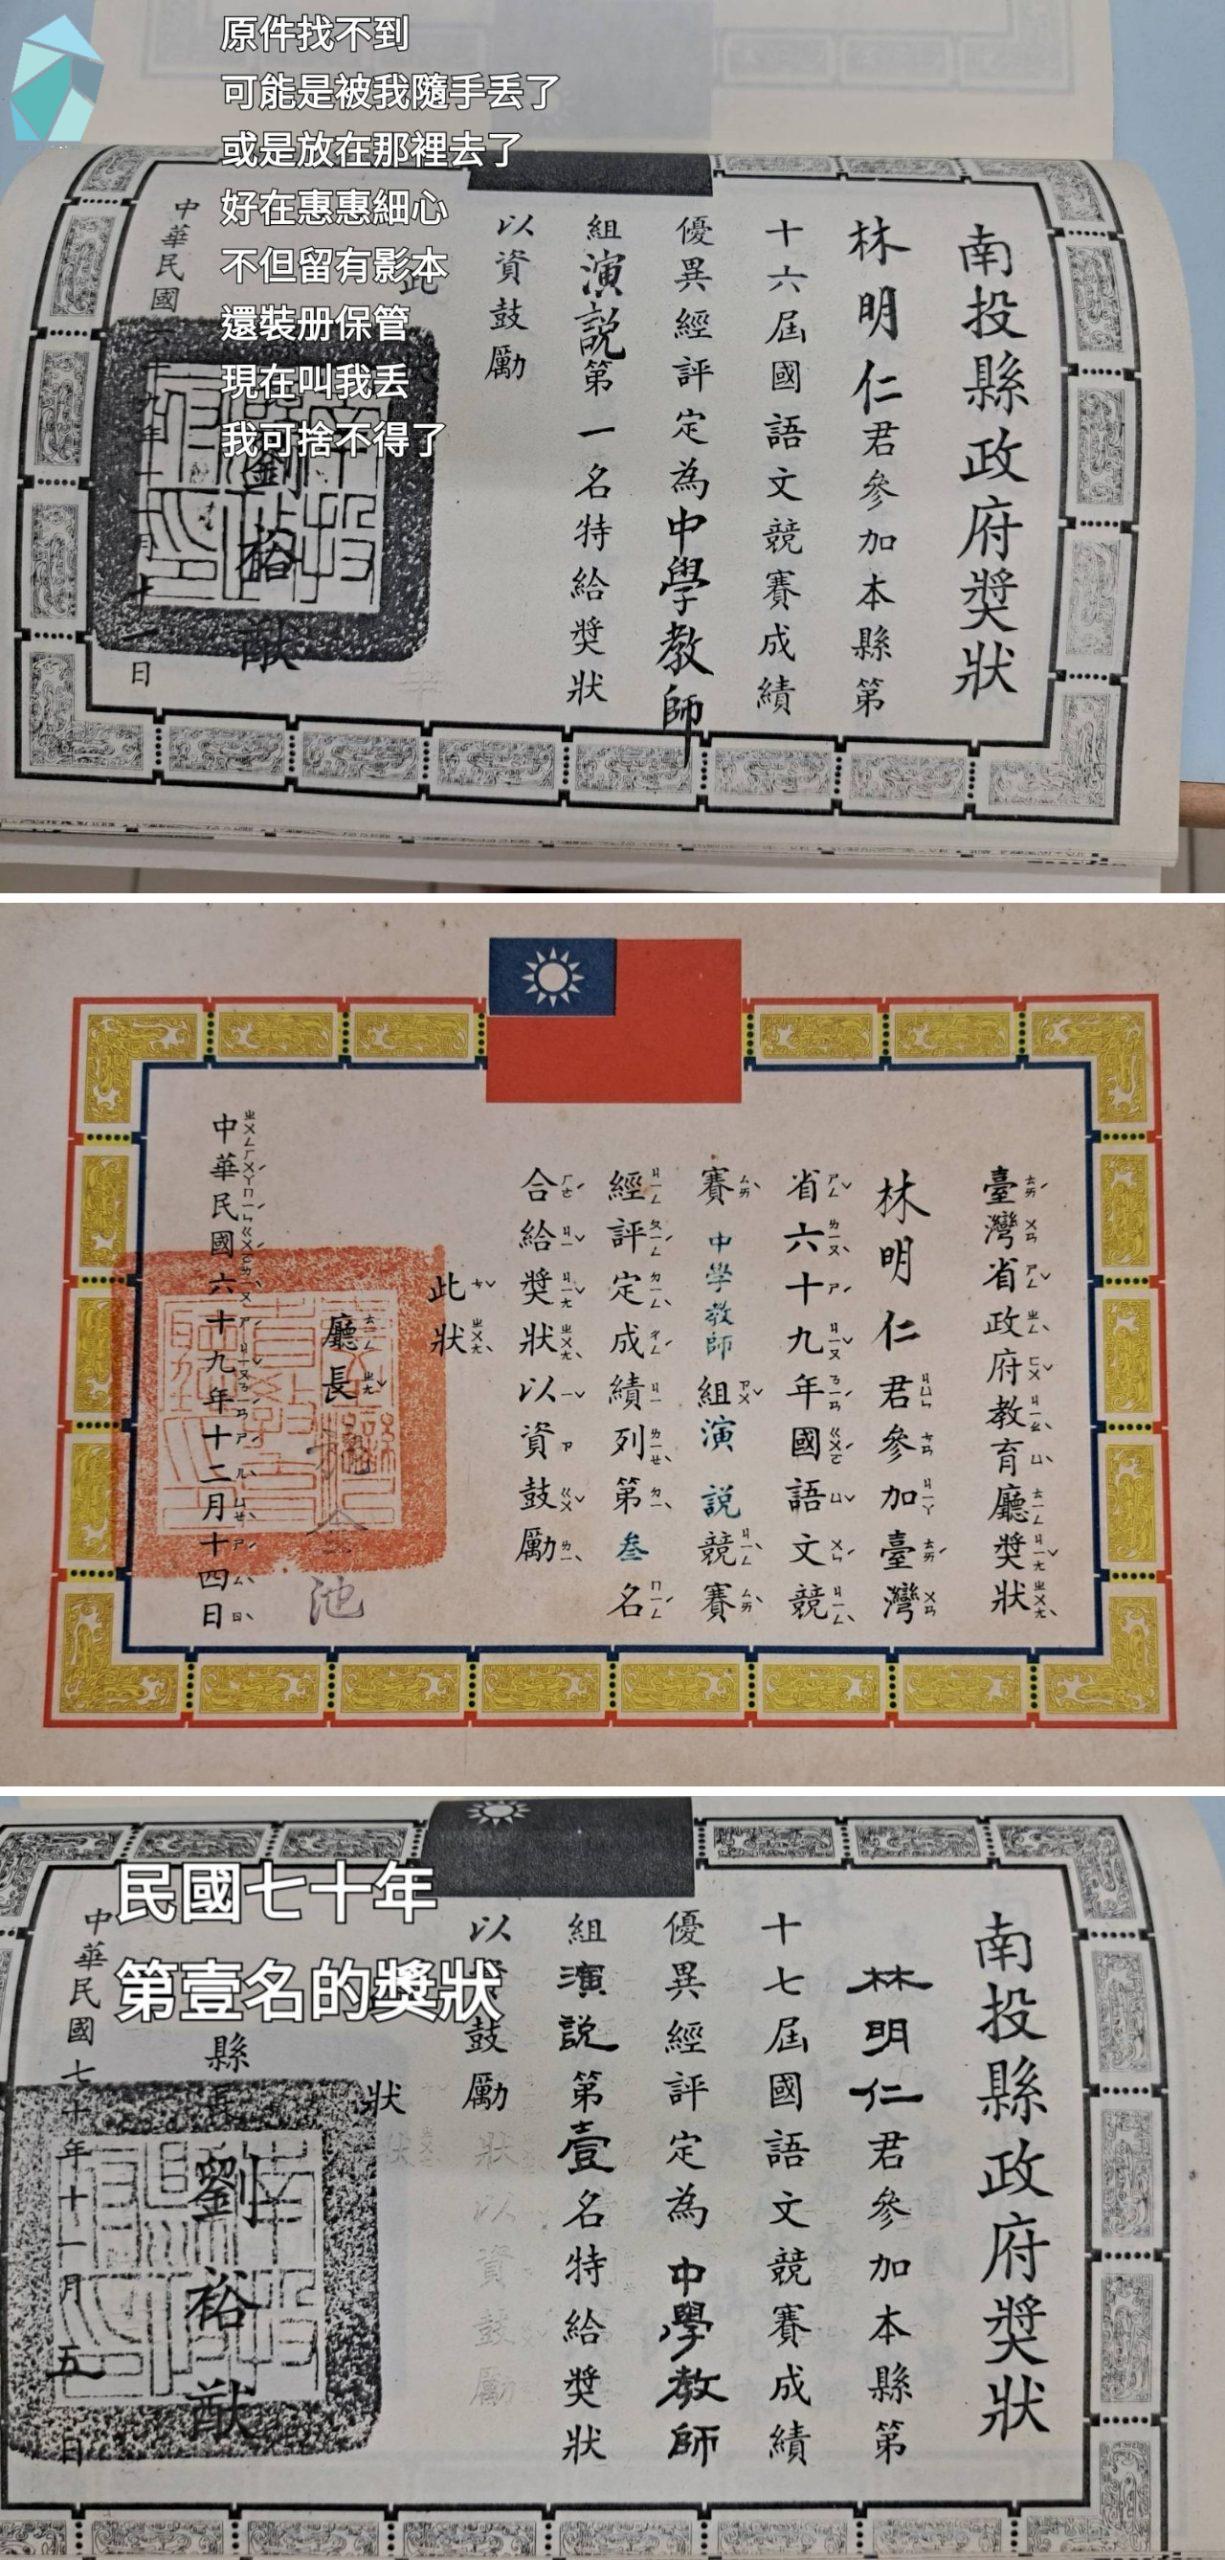 原件找不到
可能是被我隨手丟了
或是放在那裡去了
好在惠惠細心
不但留有影本
還裝册保管
現在叫我丟
我可捨不得了
南投縣政府獎狀
林明仁君參加本縣第
十六屆國語文競賽成績
優異經評定為中學教師
組演説第一名特給獎狀
以資鼓勵
此
劉裕猷
中華民國
九年十一月十一日
臺灣省政府教育廳獎狀
林明仁君參加臺灣
省六十九年國語文競
賽中學教師組演説競賽
經評定成績列第叁名
合給獎狀以資鼓勵
此狀
廳長
池
中華民國六十九年十二月十四日
民國七十年
第壹名的獎狀
南投縣政府獎狀
林明仁君參加本縣第
十七屆國語文競賽成績
優異經評定為中學教師
組演説第壹名特給獎狀
以資鼓勵
狀
縣長劉裕猷
中華民國七十年十一月五日